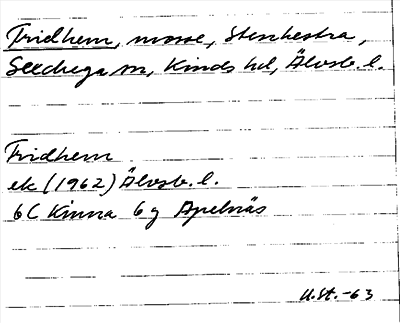 Fridhem, mosse, Stenhestra,
Seechega sn, Kinds hd, Älvsb. l.
Fridhem
ek (1962) Älvsb. l.
6C Kinna 6g Apelnäs
U.St. -63